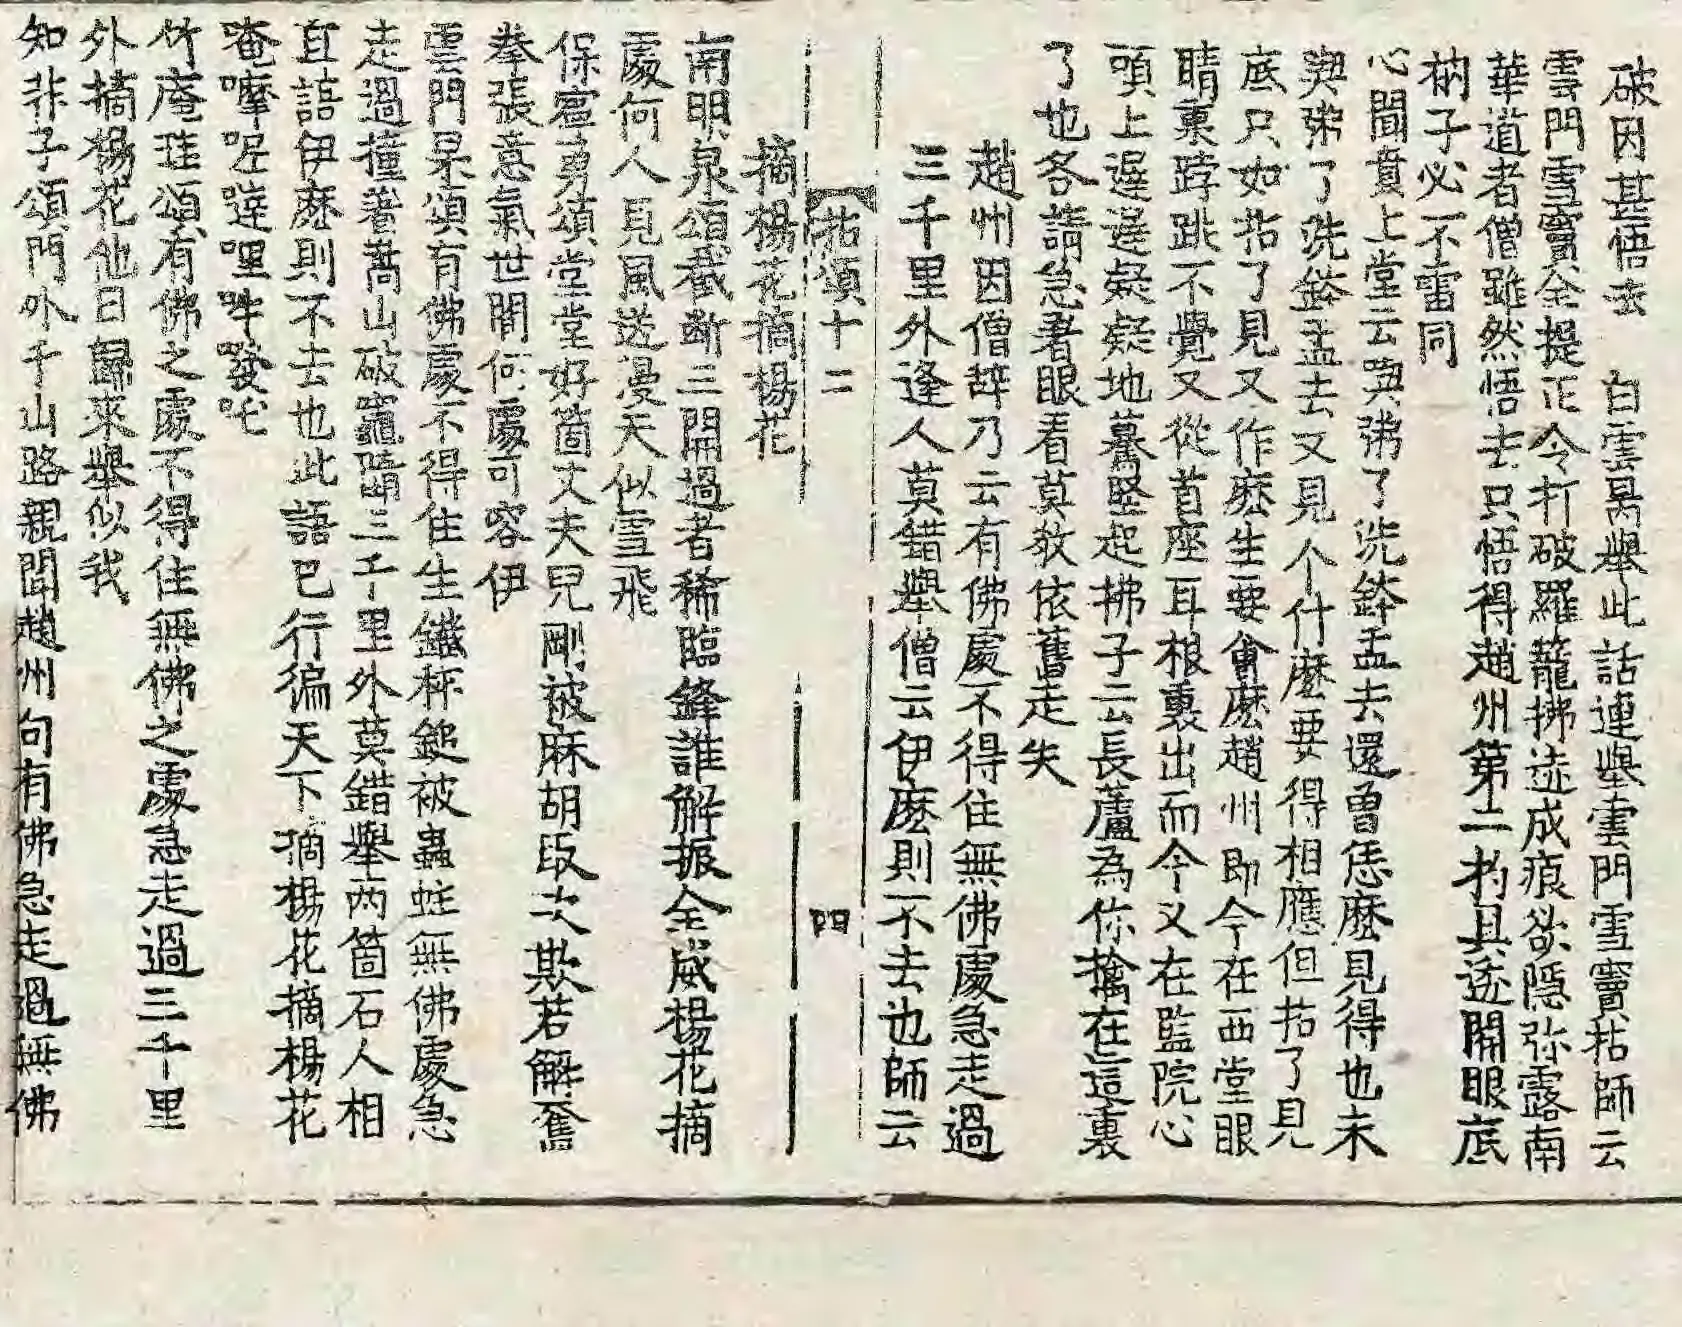 破因甚悟去　白雲昺舉此話連舉雲門雪竇拈師云
雲門雪竇全提正令打破羅籠拂迹成痕欲隱弥露南
華道者僧雖然悟去只悟得趙州第二杓具透關眼底
衲子必不雷同
心聞賁上堂云喫粥了洗鉢盂去還曾恁麽見得也未
喫粥了洗鉢盂去又見个什麽要得相應但拈了見
底只如拈了見又作麽生要會麽趙州即今在西堂眼
睛裏𨁝跳不覺又從首座耳根裏出而今又在監院心
頭上遲遲疑疑地驀竪起拂子云長蘆為你擒在這裏
了也各請急著眼看莫教依舊走失
趙州因僧辞乃云有佛處不得住無佛處急走過
三千里外逢人莫錯舉僧云伊麽則不去也師云
拈頌十二　四
摘楊花摘楊花
南明泉頌截斷三關過者稀臨鋒誰解振全威楊花摘
處何人見風送漫天似雪飛
保寧勇頌堂堂好箇丈夫兒剛被麻胡取次欺若解奮
拳張意氣世間何處可容伊
雲門杲頌有佛處不得住生鐵秤鎚被蟲蛀無佛處急
走過撞著嵩山破竈墮三千里外莫錯舉兩箇石人相
耳語伊麽則不去也此語已行徧天下摘楊花摘楊花
唵嚤呢噠哩吽發吒
竹庵珪頌有佛之處不得住無佛之處急走過三千里
外摘楊花他日歸來舉似我
知非子頌門外千山路親聞趙州句有佛急走過無佛